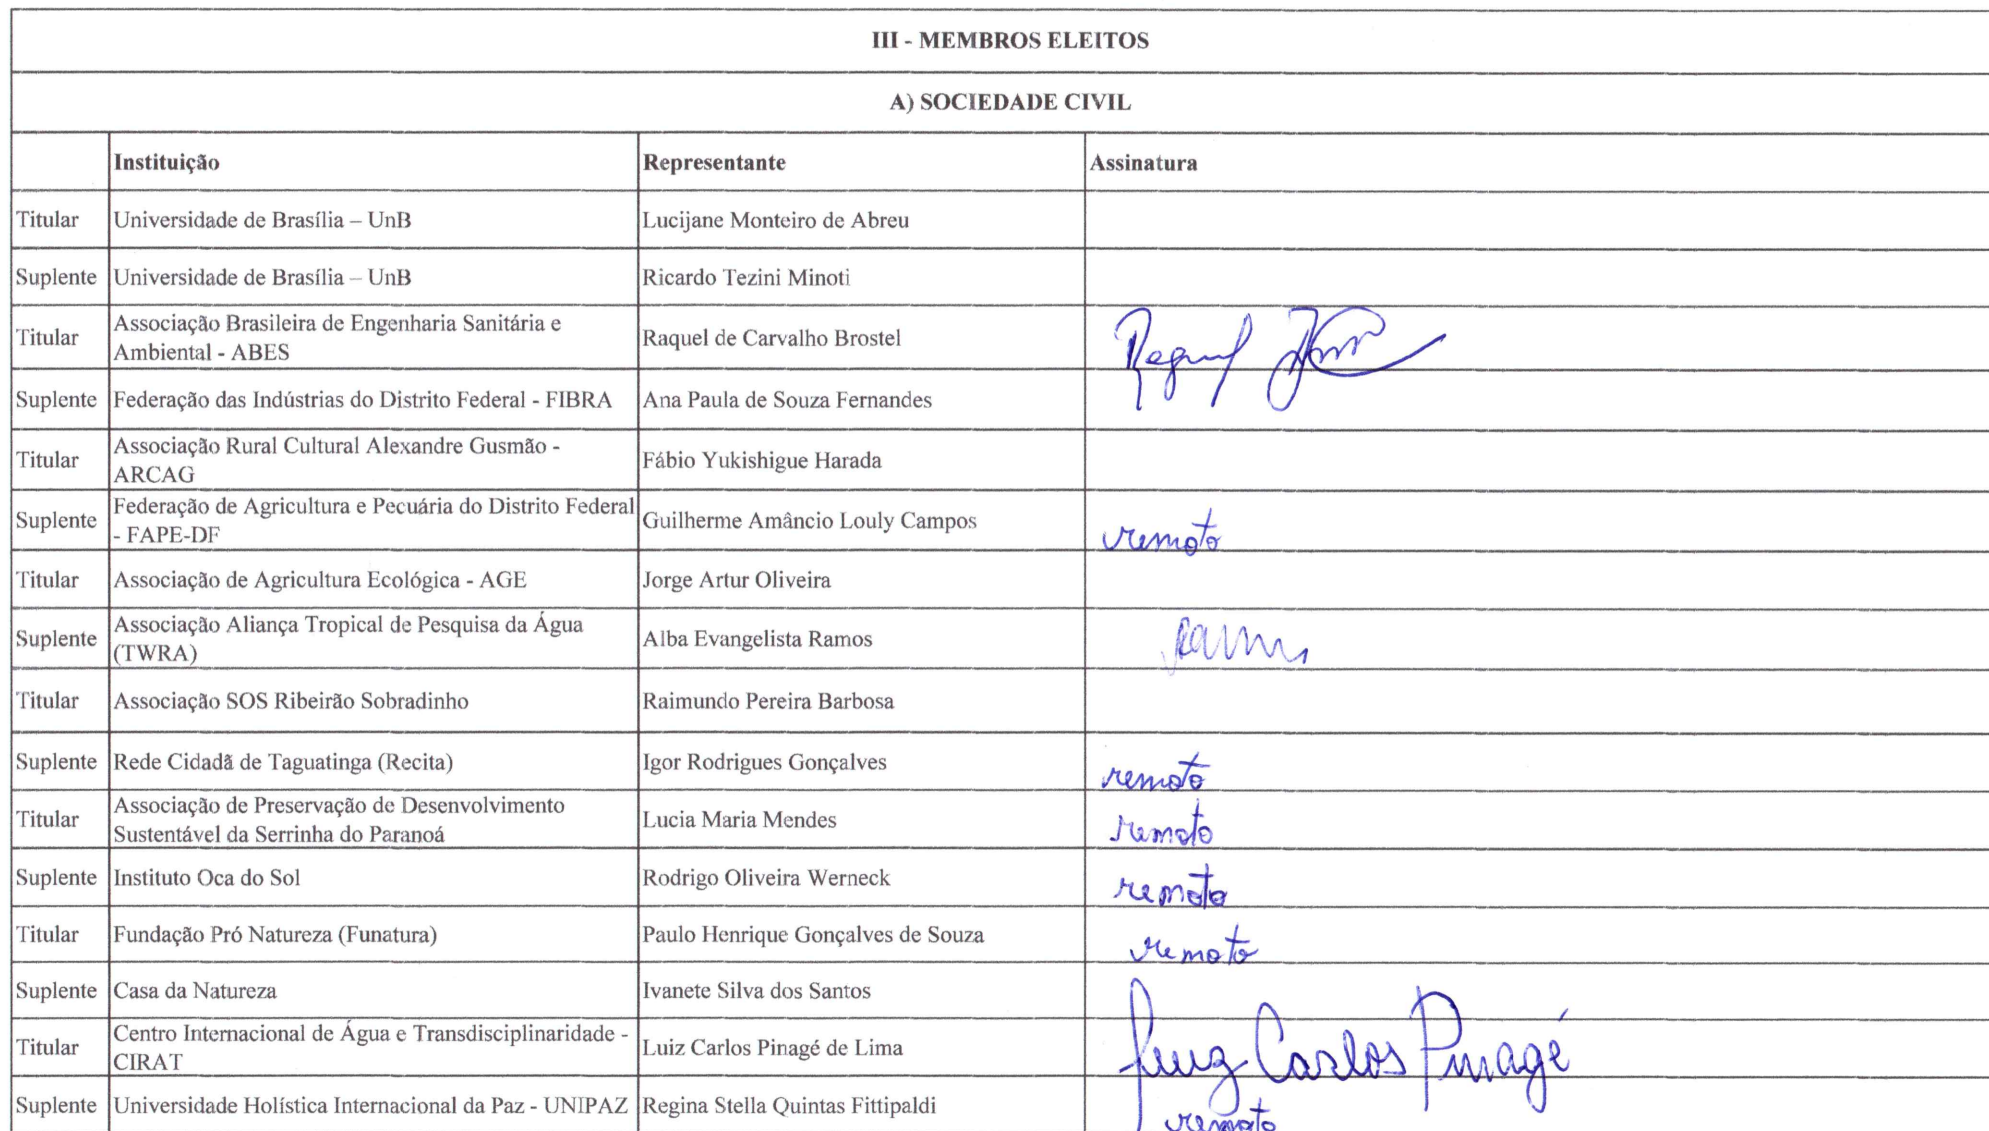 III - MEMBROS ELEITOS
A) SOCIEDADE CIVIL
Instituição Representante Assinatura
Titular Universidade de Brasília – UnB Lucijane Monteiro de Abreu
Suplente Universidade de Brasília – UnB Ricardo Tezini Minoti
Titular Associação Brasileira de Engenharia Sanitária e
Ambiental - ABES Raquel de Carvalho Brostel Raquel
Suplente Federação das Indústrias do Distrito Federal - FIBRA Ana Paula de Souza Fernandes
Titular Associação Rural Cultural Alexandre Gusmão -
ARCAG Fábio Yukishigue Harada
Suplente Federação de Agricultura e Pecuária do Distrito Federal
- FAPE-DF Guilherme Amâncio Louly Campos remoto
Titular Associação de Agricultura Ecológica - AGE Jorge Artur Oliveira
Suplente Associação Aliança Tropical de Pesquisa da Água
(TWRA) Alba Evangelista Ramos
Titular Associação SOS Ribeirão Sobradinho Raimundo Pereira Barbosa
Suplente Rede Cidadã de Taguatinga (Recita) Igor Rodrigues Gonçalves remoto
Titular Associação de Preservação de Desenvolvimento
Sustentável da Serrinha do Paranoá Lucia Maria Mendes remoto
Suplente Instituto Oca do Sol Rodrigo Oliveira Werneck remoto
Titular Fundação Pró Natureza (Funatura) Paulo Henrique Gonçalves de Souza remoto
Suplente Casa da Natureza Ivanete Silva dos Santos
Titular Centro Internacional de Água e Transdisciplinaridade -
CIRAT Luiz Carlos Pinagé de Lima Luiz Carlos Pinagé
Suplente Universidade Holística Internacional da Paz - UNIPAZ Regina Stella Quintas Fittipaldi remoto